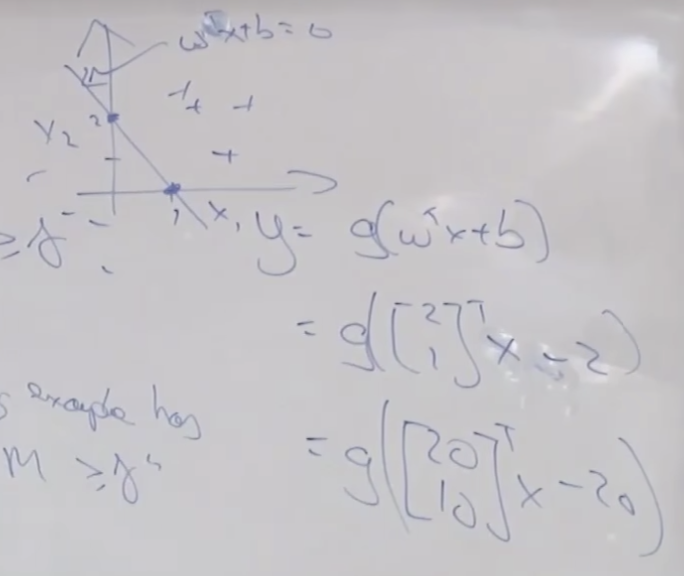 wᵀx+b=0
x₂ 2
1 x₁
≥ γ
y = g(wᵀx+b)
= g([2 1]ᵀ x - 2)
example has
M ≥ γ"
= g([20 10]ᵀ x - 20)